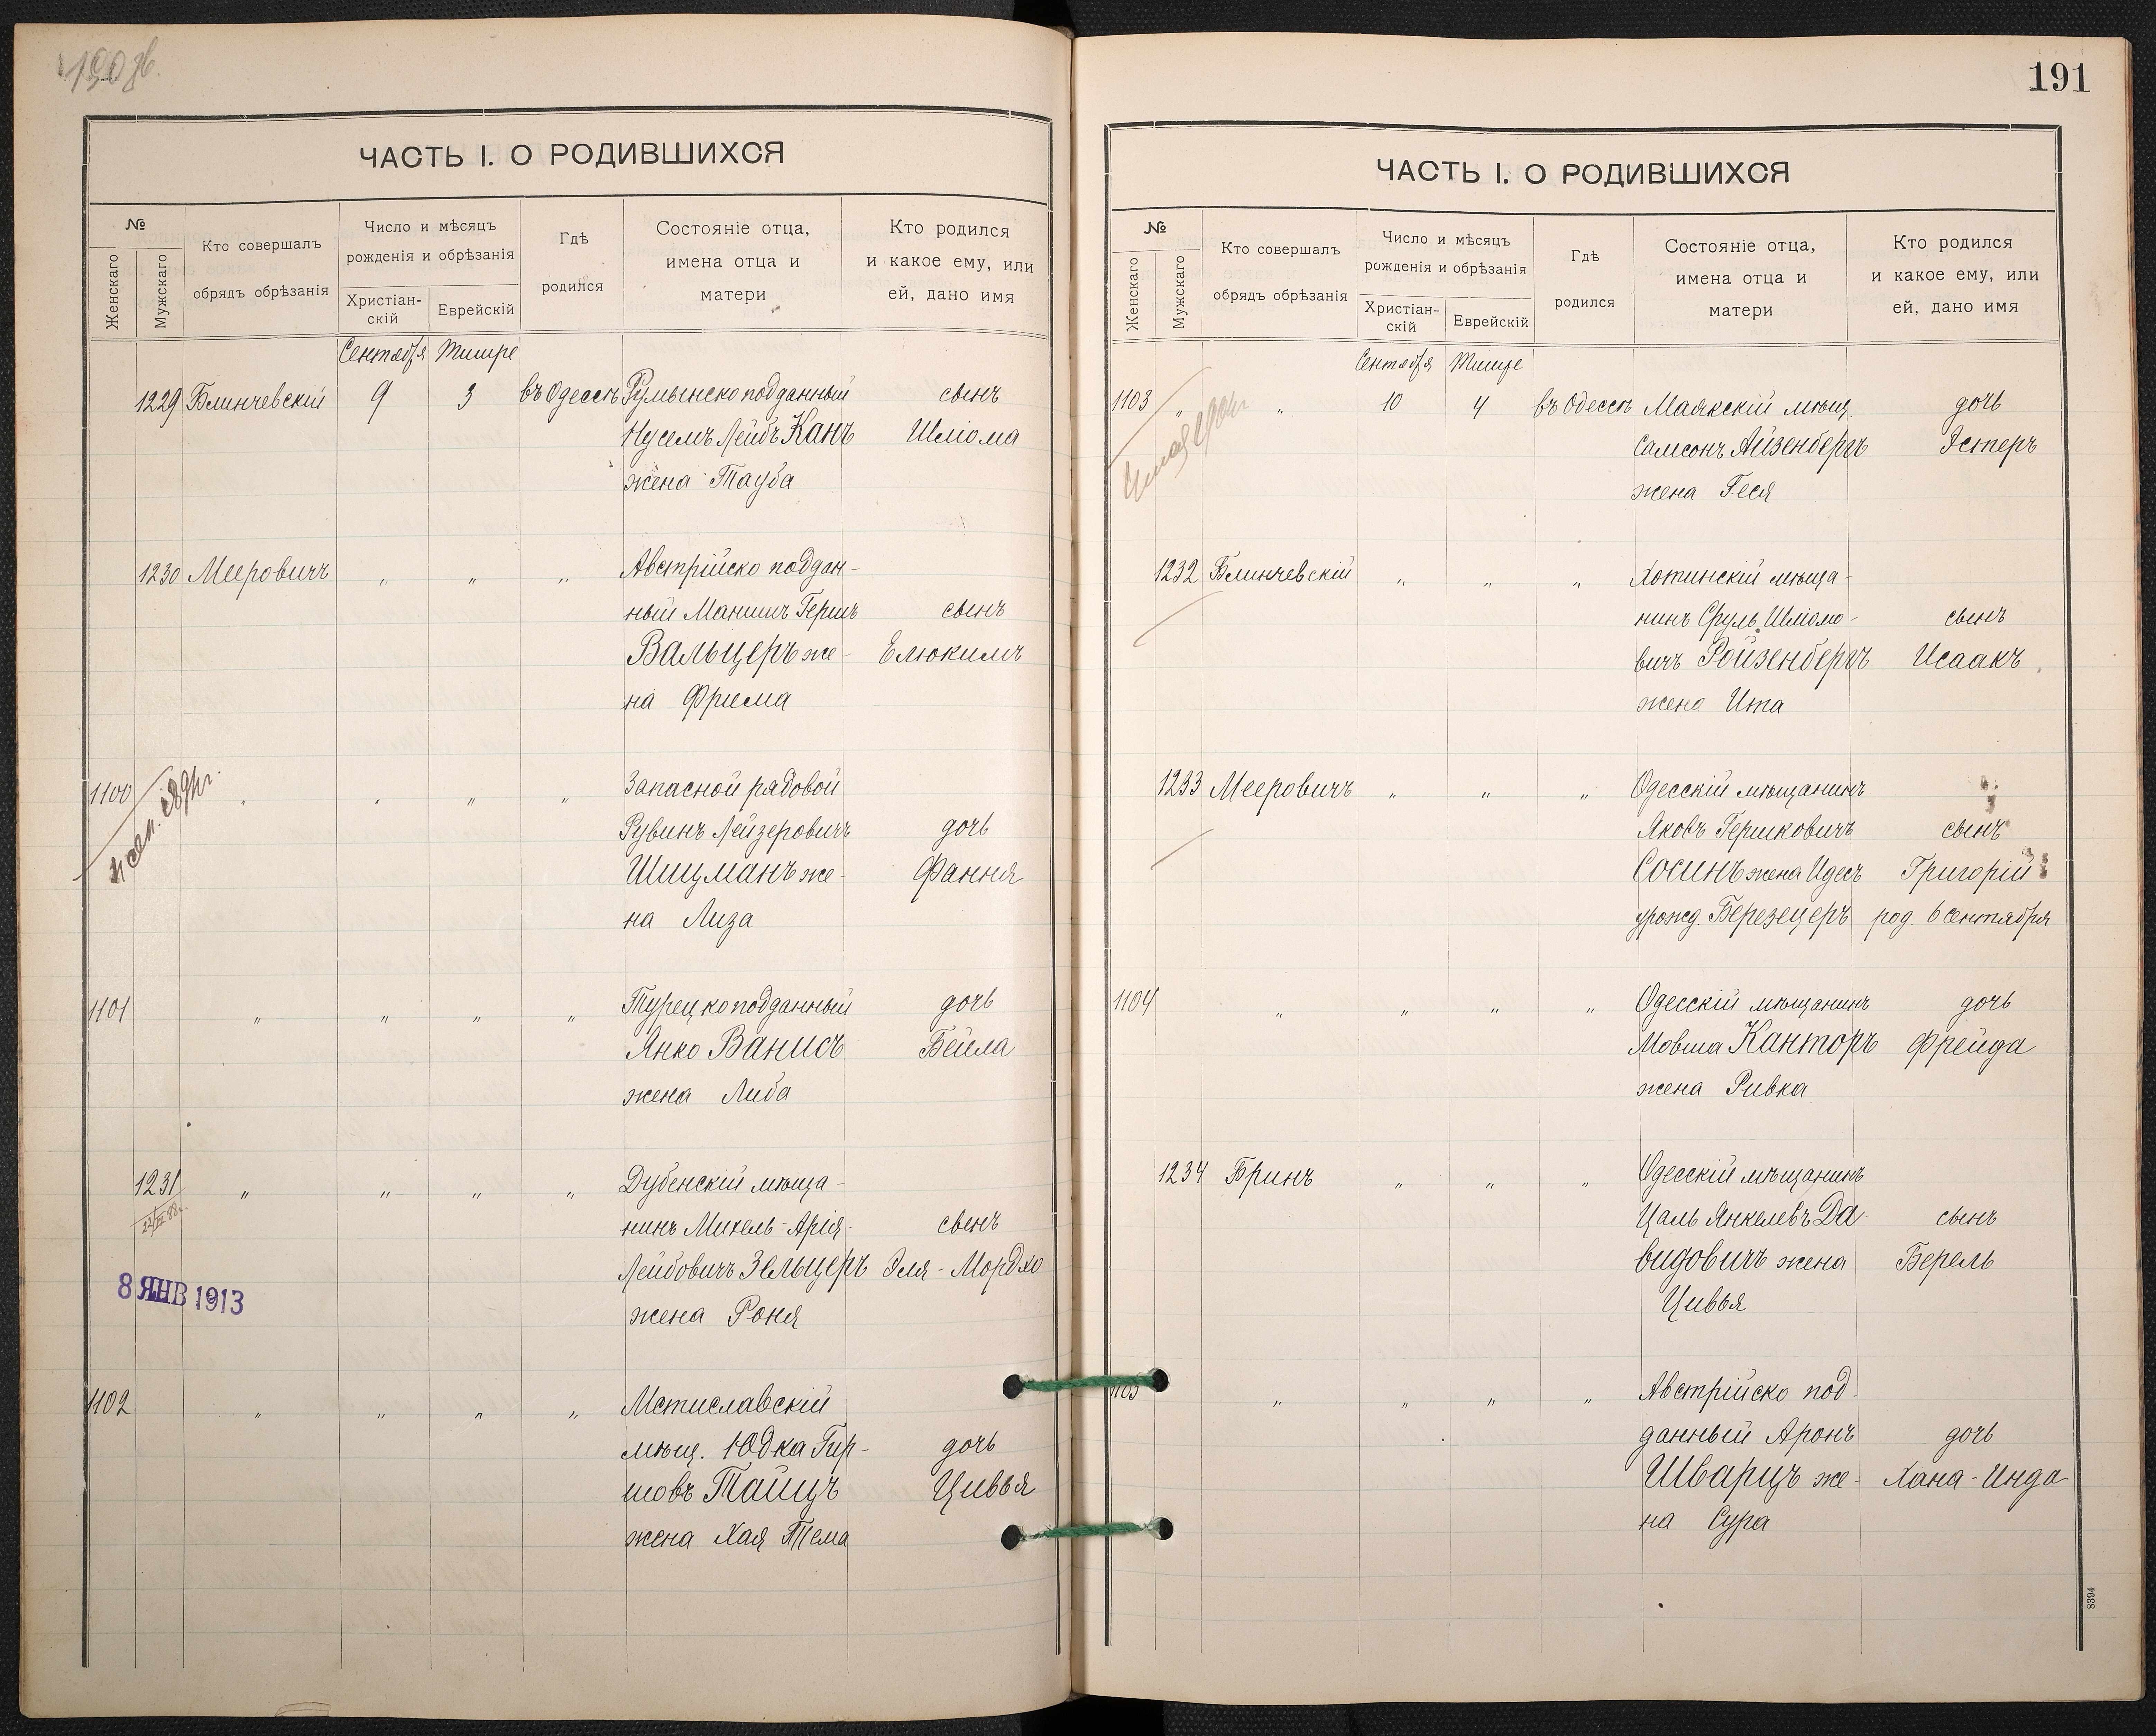 190 об.
ЧАСТЬ I. О РОДИВШИХСЯ
№
Женскаго
Мужскаго
Кто совершалъ
обрядъ обрѣзанія
Число и мѣсяцъ
рожденія и обрѣзанія
Христіан-
скій
Еврейскій
Гдѣ
родился
Состояніе отца,
имена отца и
матери
Кто родился
и какое ему, или
ей, дано имя
Сентября Тишре
1229 Блинчевскій 9 3 въ Одессѣ Румынскоподданный сынъ
Нусемъ Лейбъ Канъ Шліома
жена Тауба
1230 Мееровичъ „ „ „ Австрійско поддан-
ный Манишъ Гершъ сынъ
Вальцеръ же- Елюкимъ
на Фрима
1100 „ „ „ „ Запасной рядовой
Рувинъ Лейзеровичъ дочь
Шицманъ же- Фання
на Лиза
1101 „ „ „ „ Турецкоподданный дочь
Янко Ванисъ Бейла
жена Либа
1231 „ „ „ „ Дубенскій мѣща-
нинъ Михель-Арія сынъ
Лейбовичъ Зельцеръ Эля-Мордхо
жена Роня
8 ЯНВ 1913
1102 „ „ „ „ Мстиславскій
мѣщ. Юдка Гир- дочь
шовъ Тайцъ Цивья
жена Хая Тема
191
ЧАСТЬ I. О РОДИВШИХСЯ
№
Женскаго
Мужскаго
Кто совершалъ
обрядъ обрѣзанія
Число и мѣсяцъ
рожденія и обрѣзанія
Христіан-
скій
Еврейскій
Гдѣ
родился
Состояніе отца,
имена отца и
матери
Кто родился
и какое ему, или
ей, дано имя
Сентября Тишре
1103 „ „ 10 4 въ Одессѣ Маякскій мѣщ. дочь
Самсонъ Айзенбергъ Эстеръ
жена Геся
1232 Блинчевскій „ „ „ Хотинскій мѣща-
нинъ Сруль Шліомо- сынъ
вичъ Ройзенбергъ Исаакъ
жена Ита
1233 Мееровичъ „ „ „ Одесскій мѣщанинъ
Яковъ Гершковичъ сынъ
Сосинъ жена Идесъ Григорій
урожд. Березецеръ род. 6 сентября
1104 „ „ „ „ Одесскій мѣщанинъ дочь
Мовша Канторъ Фрейда
жена Ривка
1234 Бринъ „ „ „ Одесскій мѣщанинъ
Цаль Янкелевъ Да- сынъ
видовичъ жена Берель
Цивья
1105 „ „ „ „ Австрійско под-
данный Аронъ дочь
Шварцъ же- Хана-Инда
на Сура
8394